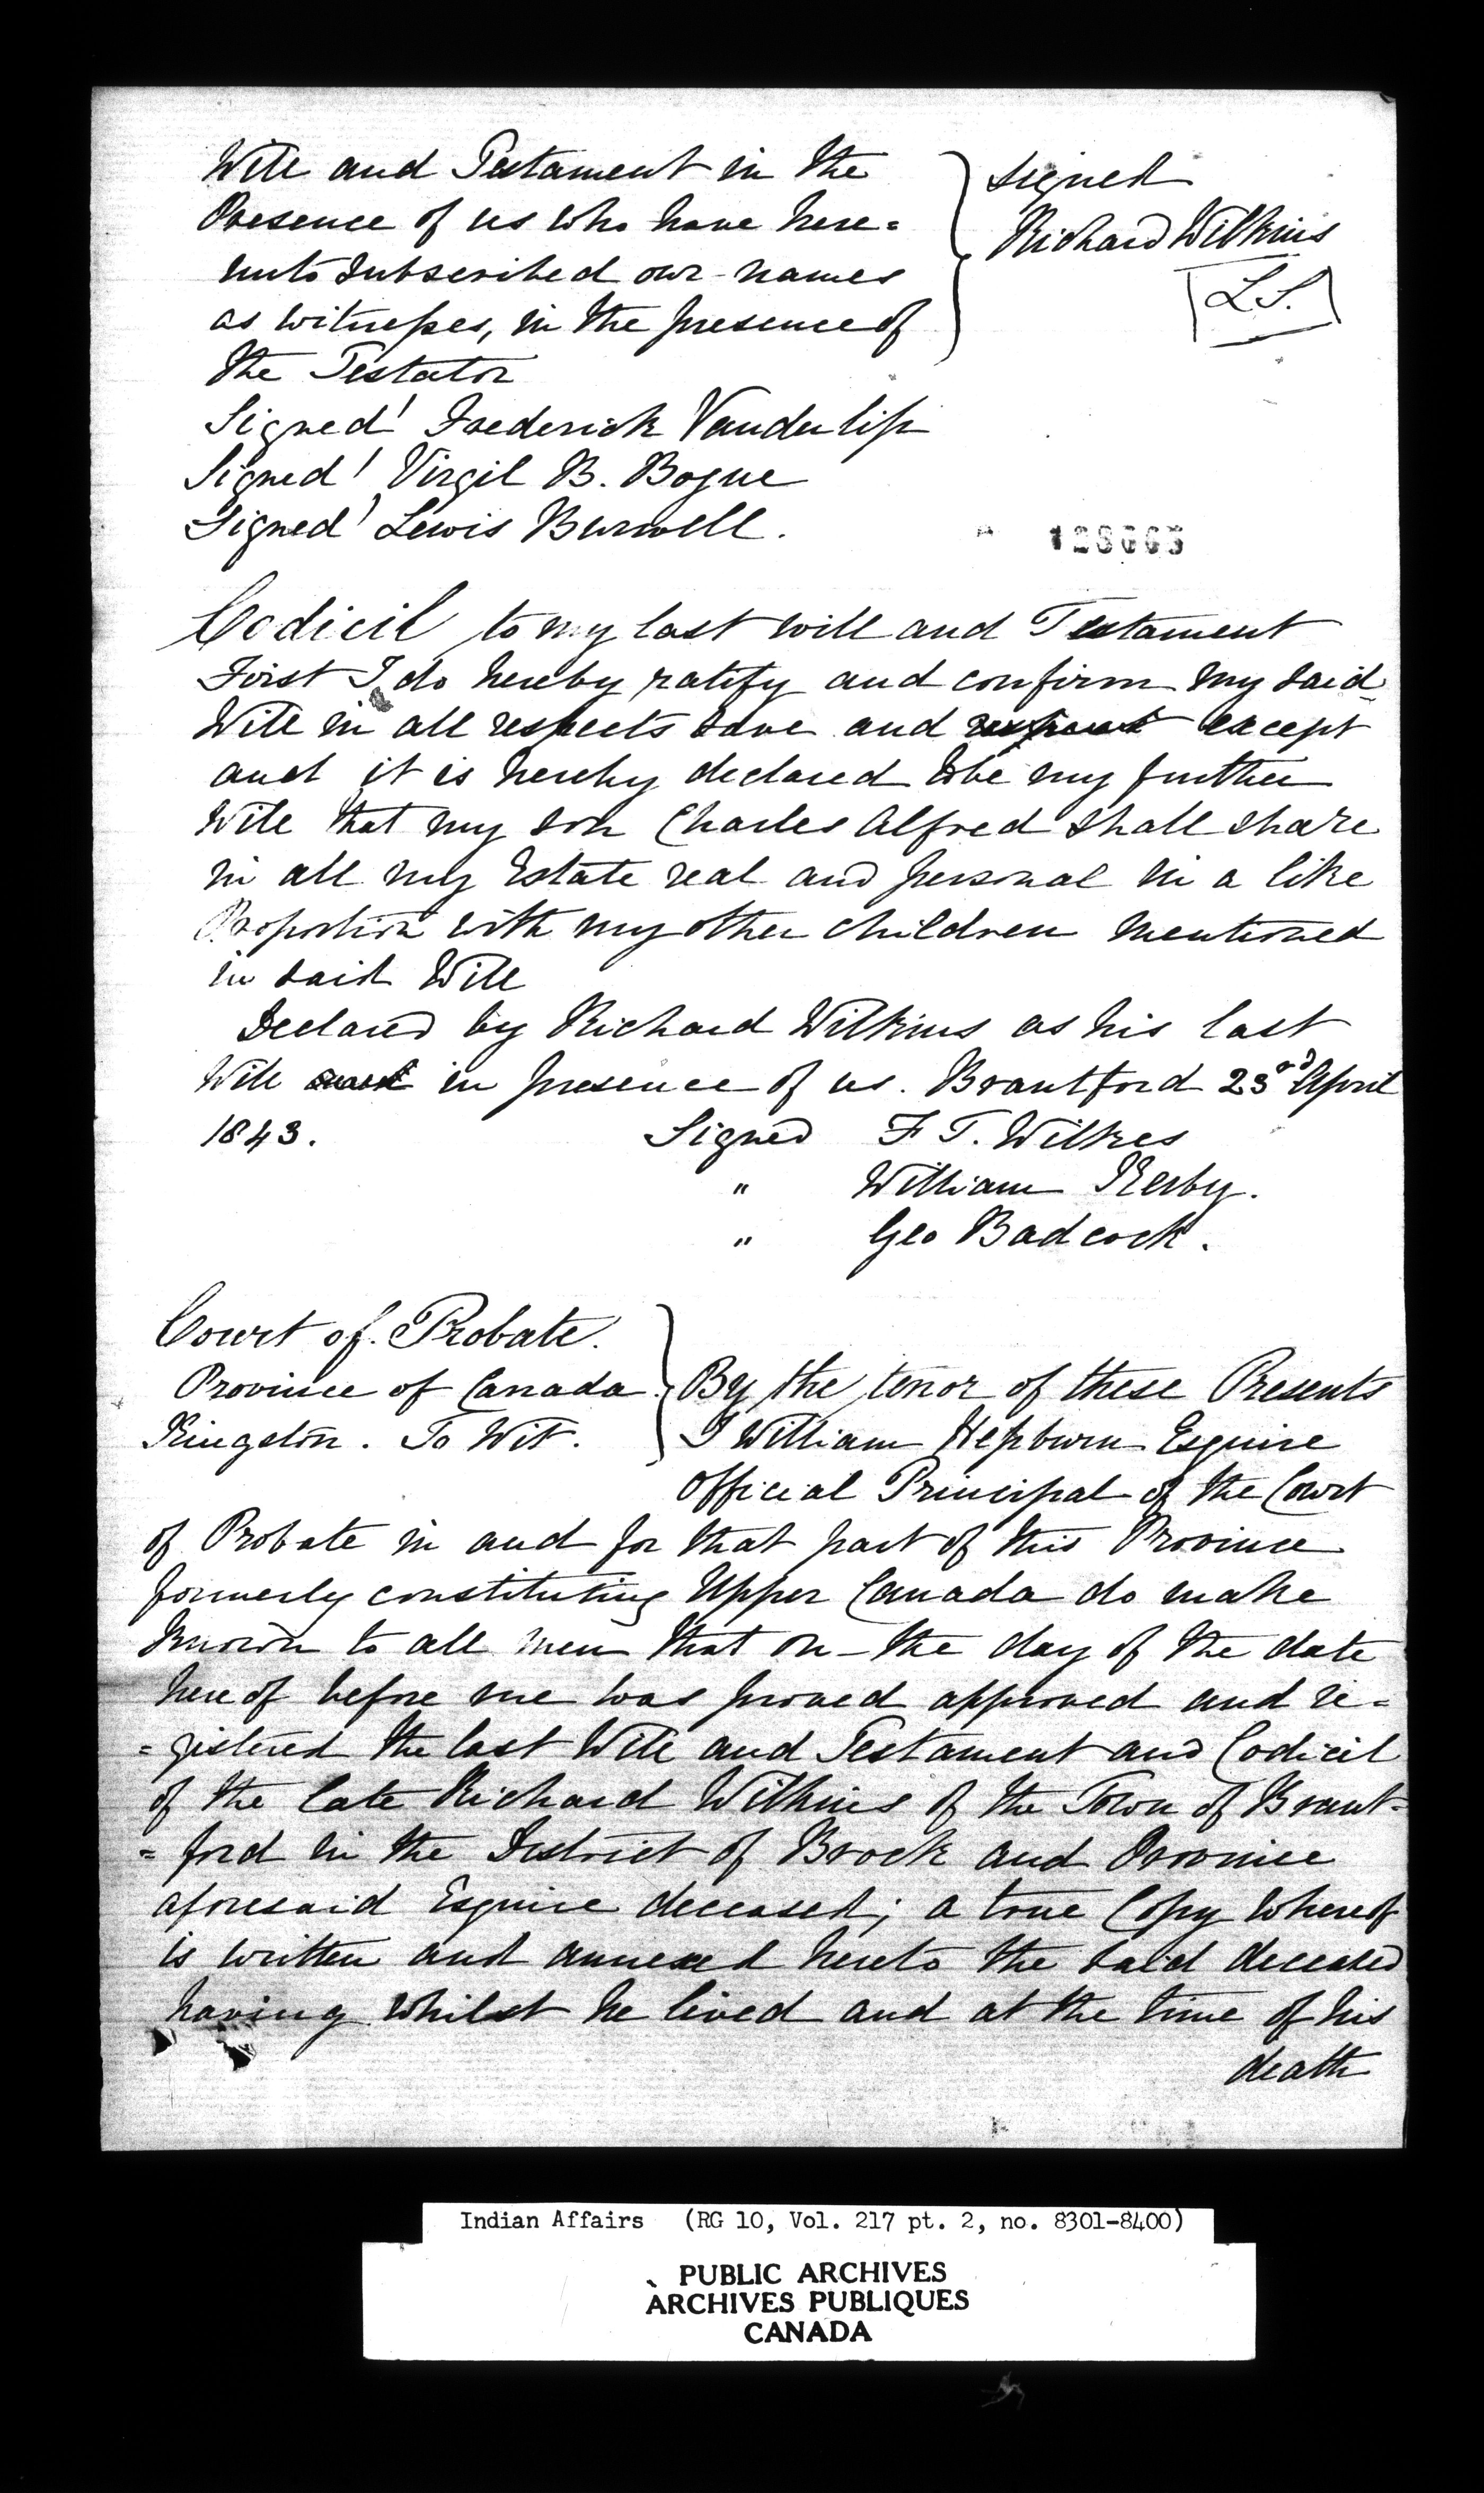 Will and Testament in the
Presence of us who have here=
unto subscribed our names
as witnesses, in the presence of
the Testator
signed
Richard Wilkins
L.S.
Signed! Frederick Vanderlip
Signed! Virgil B. Bogue
Signed! Lewis Burwell.
Codicil to my last will and Testament
First I do hereby ratify and confirm my said
Will in all respects save and except
and it is hereby declared to be my further
Will that my son Charles Alfred shall share
in all my Estate real and personal in a like
Proportion with my other children mentioned
in said Will
Declared by Richard Wilkins as his last
Will and in presence of us. Brantford 23rd April
1843. Signed F T. Wilkes
" William Kerby.
" Geo Badcock.
Court of Probate.
Province of Canada
Kingston. To Wit.
By the tenor of these Presents
I William Hepburn Esquire
Official Principal of the Court
of Probate in and for that part of this Province
formerly constituting Upper Canada do make
known to all men that on the day of the date
hereof before me was proved approved and re=
=gistered the last Will and Testament and Codicil
of the late Richard Wilkins of the Town of Brant=
=ford in the District of Brock and Province
aforesaid Esquire deceased; a true Copy whereof
is written and annexed hereto the said deceased
having whilst he lived and at the time of his
death
Indian Affairs (RG 10, Vol. 217 pt. 2, no. 8301-8400)
PUBLIC ARCHIVES
ARCHIVES PUBLIQUES
CANADA